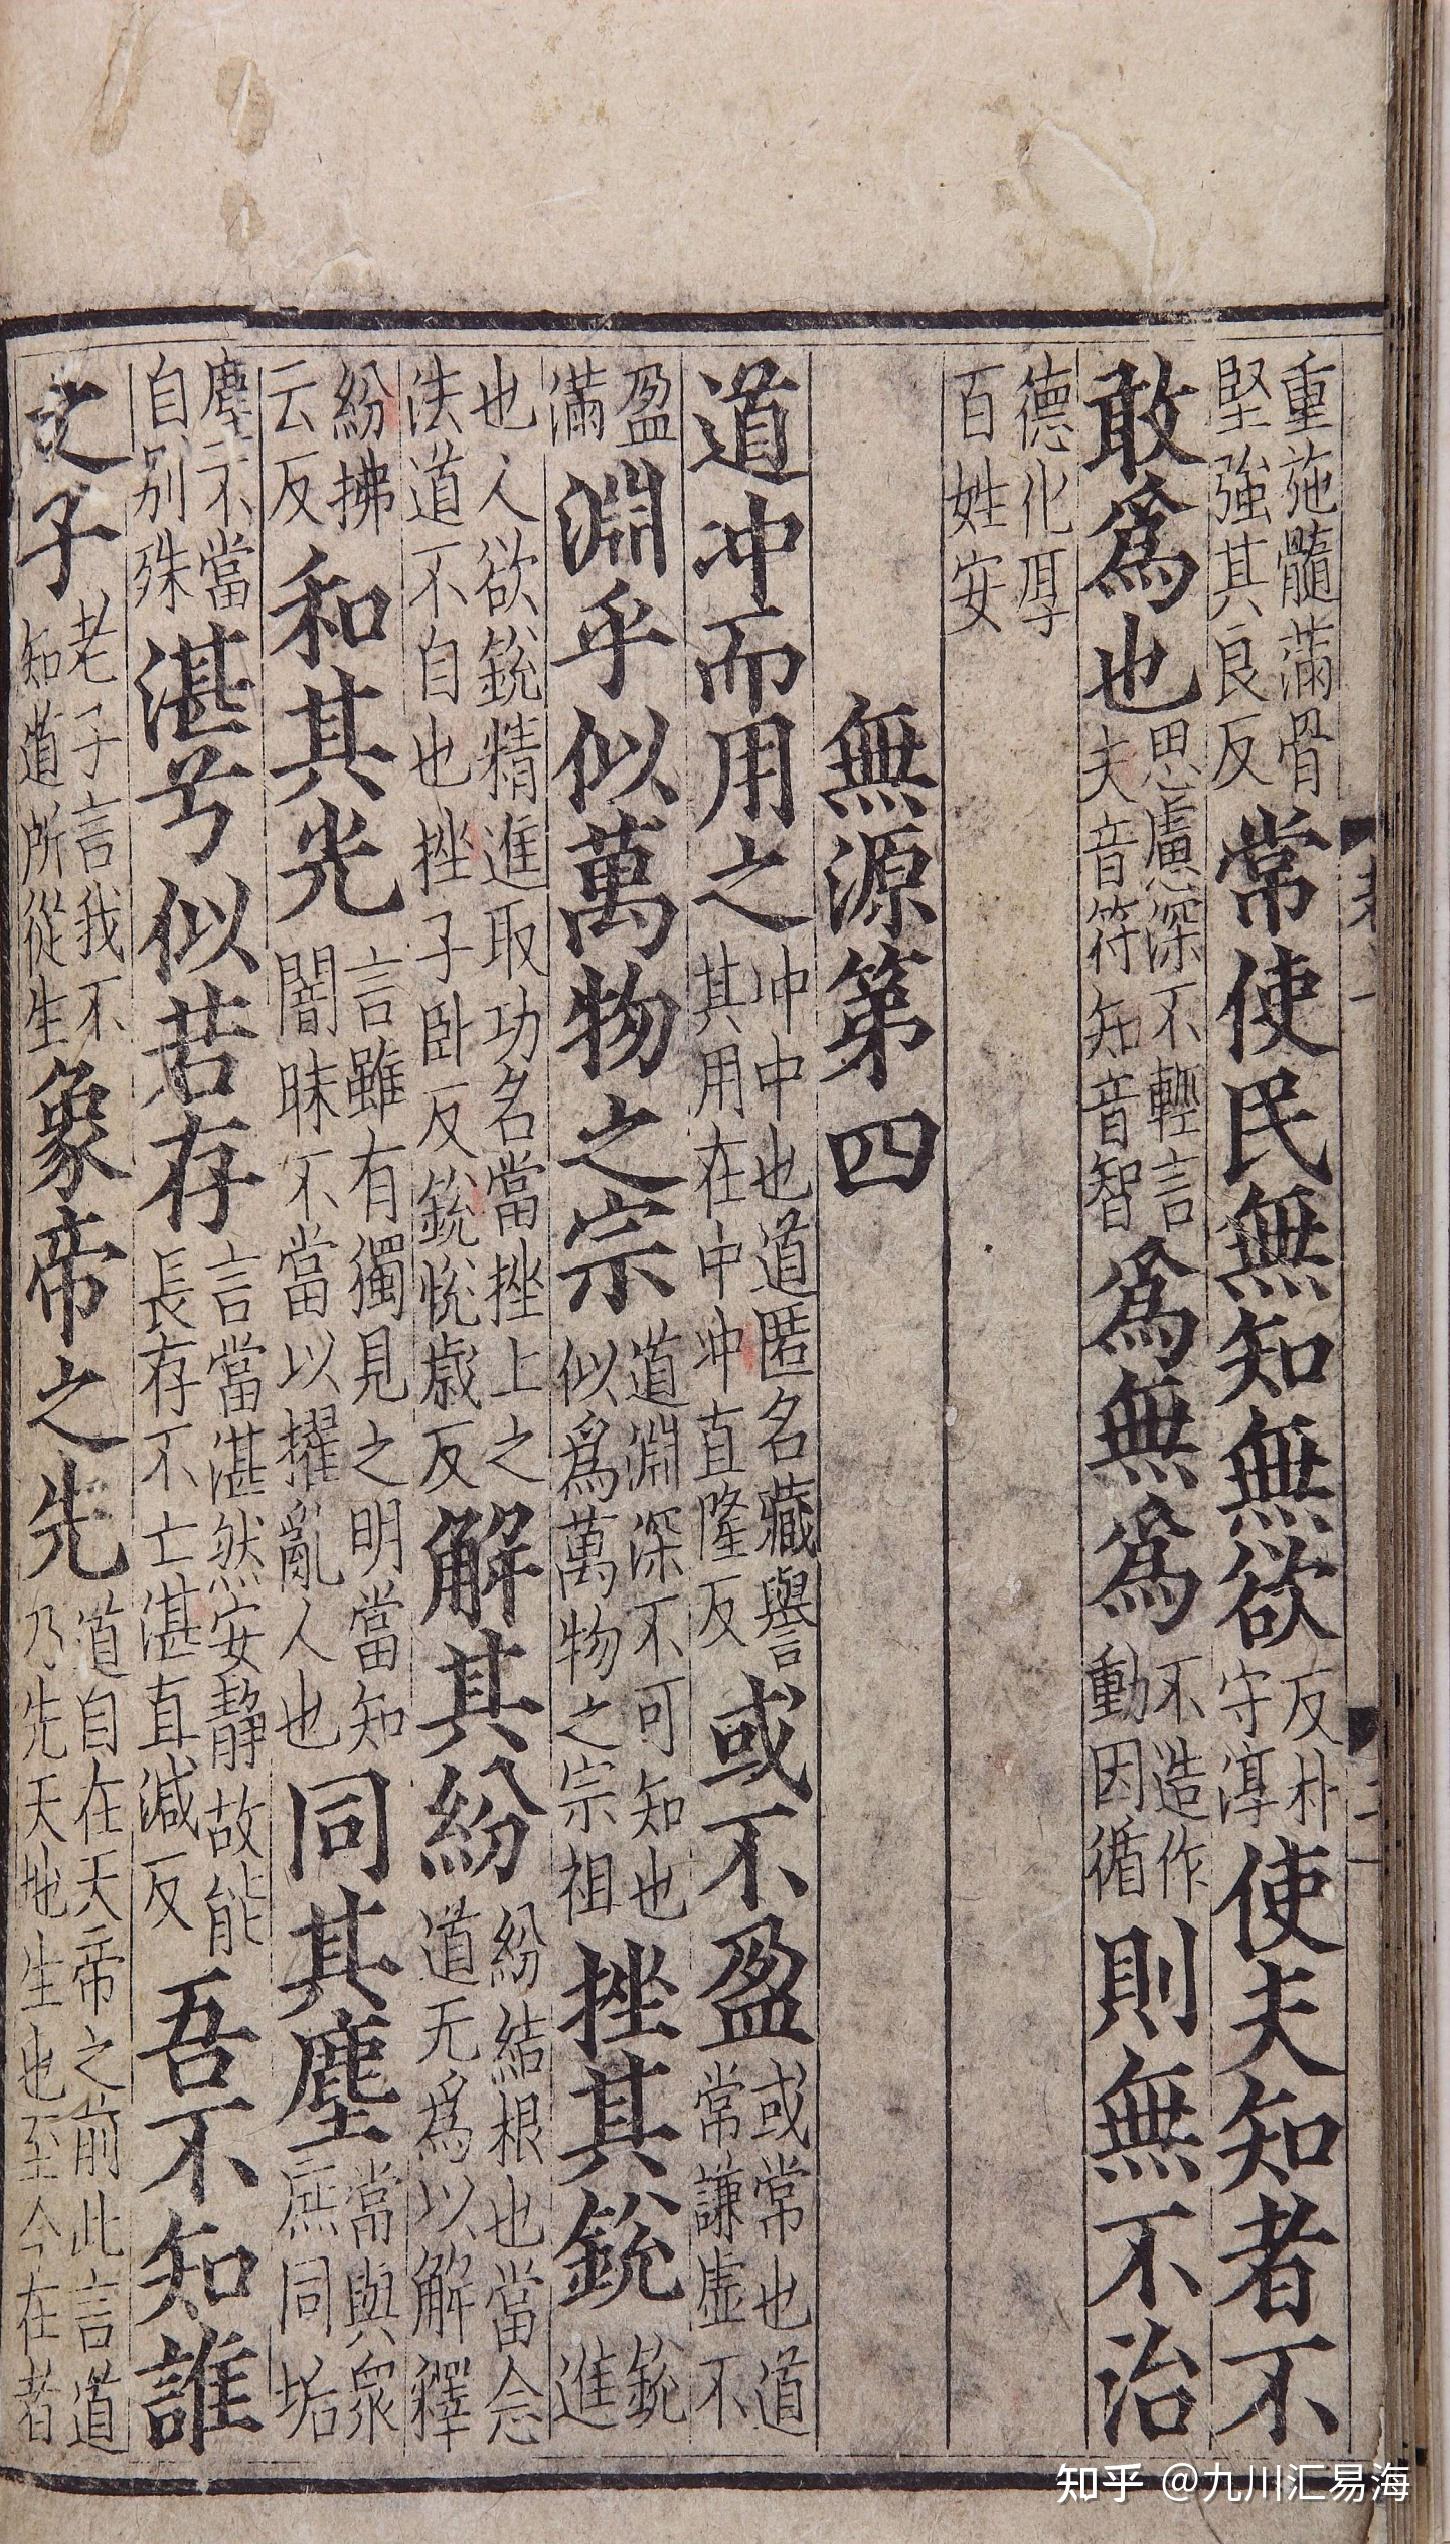 重施髓滿骨堅強其良反常使民無知無欲反朴守淳使夫知者不
敢爲也思慮深不輕言夫音符知音智爲無爲不造作動因循則無不治
德化厚百姓安
無源第四
道冲而用之冲中也道匿名藏譽其用在中冲直隆反或不盈或常也道常謙虛不
盈滿淵乎似萬物之宗道淵深不可知也似爲萬物之宗祖挫其銳銳進
也人欲銳精進取功名當挫上之法道不自也挫子臥反銳悅歲反解其紛紛結根也當念道无爲以解釋
紛拂云反和其光言雖有獨見之明當知闇昧不當以擢亂人也同其塵當與衆庶同垢
塵不當自别殊湛兮似若存言當湛然安靜故能長存不亡湛直減反吾不知誰
之子老子言我不知道所從生象帝之先道自在天帝之前此言道乃先天地生也至今在者
知乎 @九川汇易海